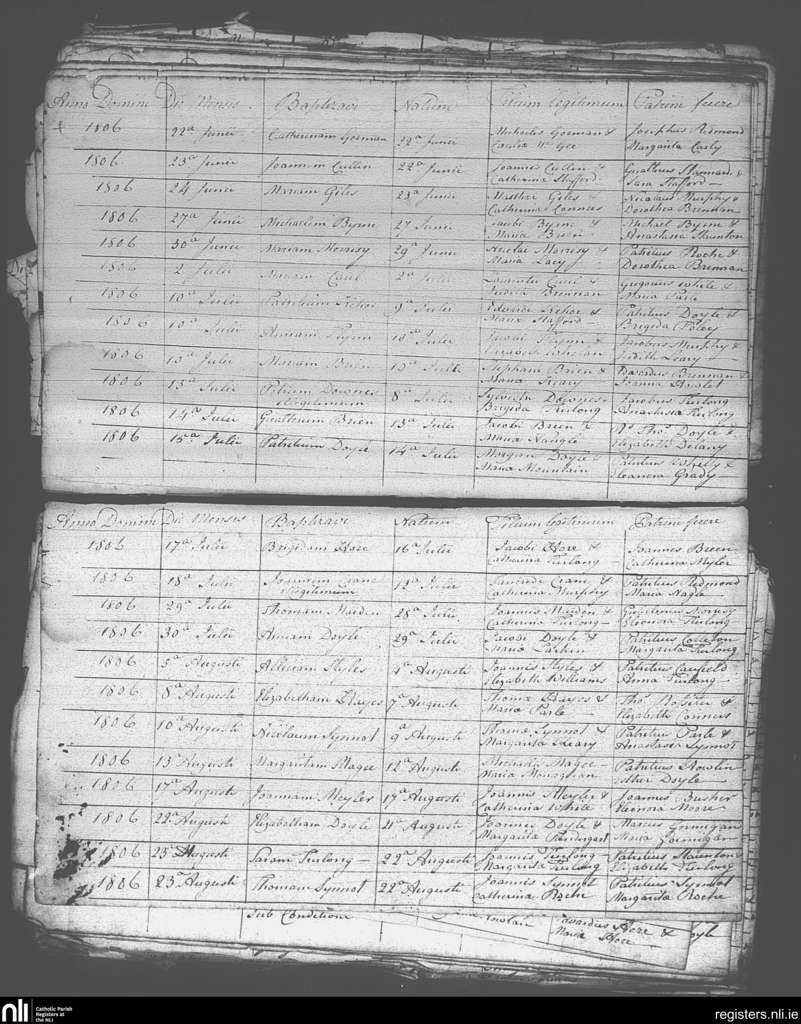 Anno Domini Die Mensis Baptizavi Natum Filium legitimum Patrini fuere
1806 22a Junii Catharinam Gorman 22a Junii Michaelis Gorman & Josephus Redmond
Margarita Carty
1806 23a Junii Joannem Cullin 22a Junii Joannis Cullin & Gualterus Stannard &
Catherina Stafford Sara Stafford
1806 24 Junii Mariam Giles 23a Junii Matthei Giles & Nicolaus Murphy &
Catherina Connors Dorothea Brennan
1806 27a Junii Michaelem Byrne 27 Junii Jacobi Byrne & Michael Byrne &
Maria Brien Anastasia Staunton
1806 30a Junii Mariam Morrisy 29a Junii Nicolai Morrisy & Patritius Roche &
Maria Lacy Dorothea Brennan
1806 2 Julii Mariam 2a Julii Gregorius White &
Brennan Maria Parle
1806 10a Julii Patritium 9a Julii Patritius Doyle &
Maria Stafford Brigida Foley
1806 10a Julii Annam Flynn 10a Julii Jacobi Flynn & Jacobus Murphy &
Elizabeth Whelan Judith Leary
1806 13a Julii Mariam Brien 10a Julii Stephani Brien & Davidus Brennan &
Maria Leary
1806 13a Julii Petrum Downes 8a Julii Sylvestri Downes & Jacobus Furlong
Illegitimum Brigida Furlong Anastasia Furlong
1806 14a Julii Gualterum Brien 13a Julii Jacobi Brien & Rs Thos Doyle &
Maria Nangle Elizabeth Delany
1806 15a Julii Patritium Doyle 14a Julii Morgan Doyle &
Maria Mountain Eleanora Grady
Anno Domini Die Mensis Baptizavi Natum Filium legitimum Patrini fuere
1806 17a Julii Brigidam Hore 16a Julii Jacobi Hore & Joannes Breen
Catherina Furlong Catherina Myler
1806 18a Julii Joannem Crane 12a Julii Laurentii Crane & Patritius Redmond
Illegitimum Catherina Murphy Maria Nagle
1806 29a Julii Thomam Maiden 28a Julii Joannis Maiden & Gulielmus Morrisy
Catherina Furlong Eleonora Furlong
1806 30a Julii Annam Doyle 29a Julii Jacobi Doyle & Patritius Colleton
Maria Larkin Margarita Furlong
1806 5a Augusti Alliciam Styles 1a Augusti Joannis Styles & Patritius Caufield
Elizabeth Williams Anna Furlong
1806 8a Augusti Elizabetham Hayes 7a Augusti Thoma Hayes & Thos Rositer &
Maria Parle Elizabeth Conners
1806 10a Augusti Nicolaum Synnot 9a Augusti Thoma Synnot & Patritius Parle &
Margarita Leary Anastasia Synnot
1806 13a Augusti Margaritam Magee 12a Augusti Michaelis Magee Patritius Nowlan
Maria Monaghan Esther Doyle
1806 17a Augusti Joannam Meyler 17a Augusti Joannis Meyler & Joannes Busher
Catherina White Eleonora Moore
1806 22a Augusti Elizabetham Doyle 21a Augusti Joannis Doyle & Marcus Gormigan
Margarita Pendergast Maria Gormigan
1806 23a Augusti Saram Furlong 22a Augusti Joannis Furlong Patritius Staunton
Margarita Furlong Elizabeth Furlong
1806 23a Augusti Thomam Synnot 22a Augusti Joannis Synnot Patritius Synnot
Catherina Roche Margarita Roche
Sub Conditione Nowlan Edwardus Hore & Doyle
Maria Hore
nli Catholic Parish
Registers at
the NLI
registers.nli.ie